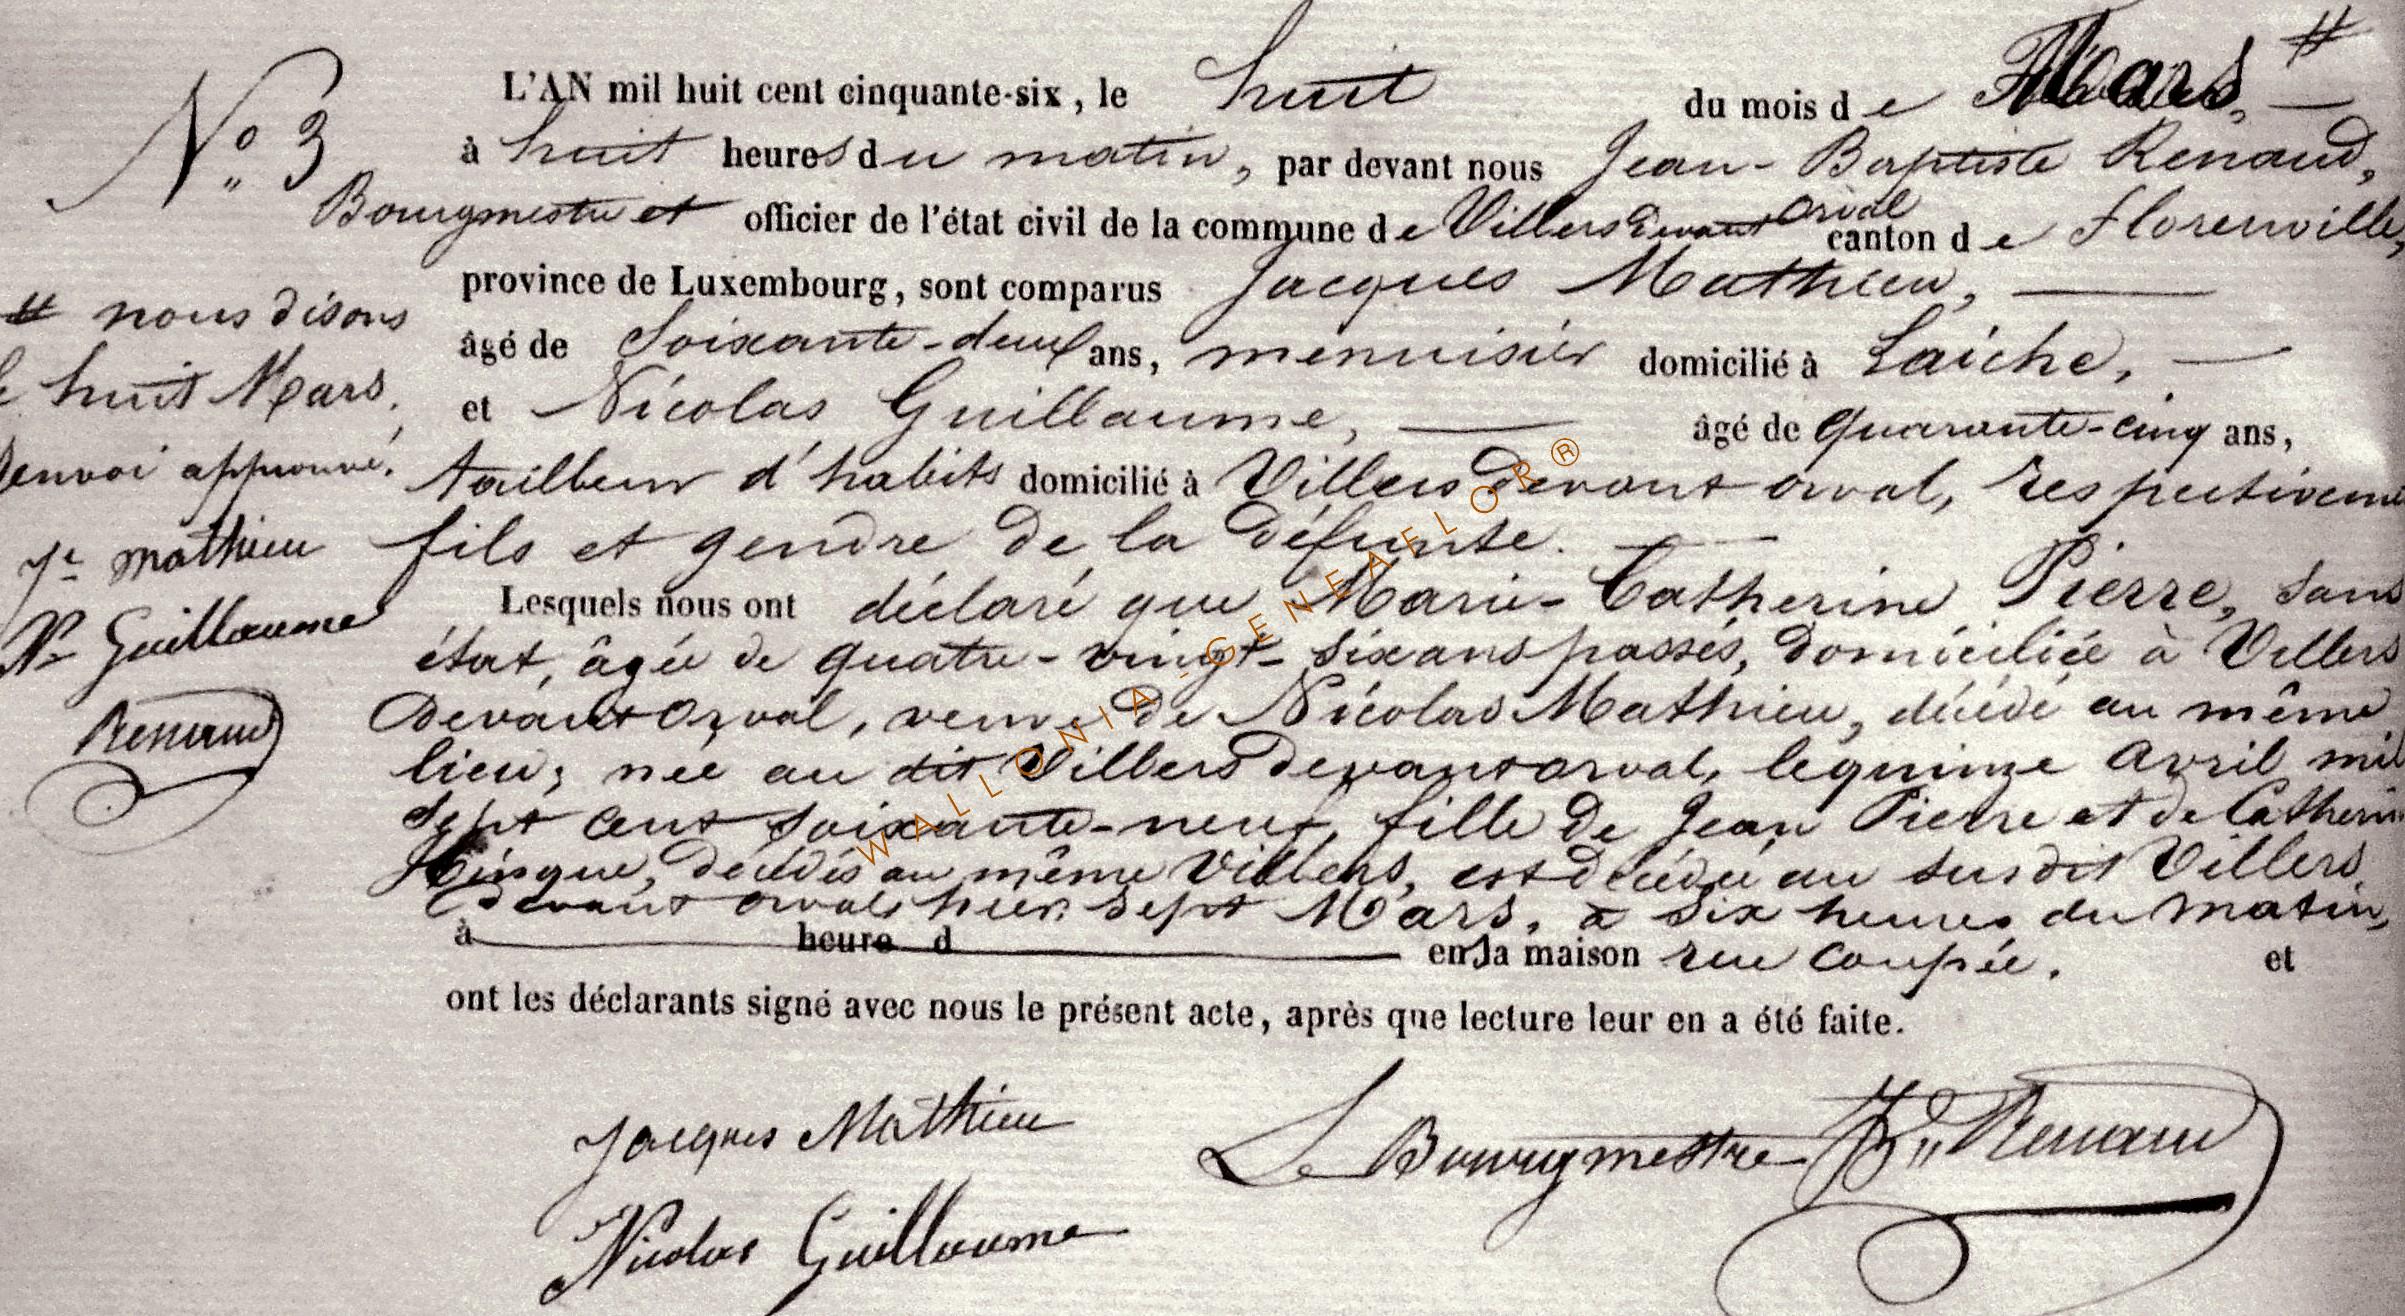 N° 3
L'AN mil huit cent cinquante-six, le huit du mois de Mars, #
à huit heures du matin, par devant nous Jean-Baptiste Renaud,
Bourgmestre et officier de l'état civil de la commune de Villers devant orval canton de Florenville,
province de Luxembourg, sont comparus Jacques Mathieu,
âgé de Soixante-deux ans, menuisier domicilié à Laiche,
et Nicolas Guillaume, âgé de quarante-cinq ans,
tailleur d'habits domicilié à Villers devant orval, respectiveme
fils et gendre de la défunte.
Lesquels nous ont déclaré que Marie-Catherine Pierre, sans
état, âgée de quatre-vingt-six ans passés, domiciliée à Villers
devant orval, veuve de Nicolas Mathieu, décédé au même
lieu, née au dit Villers devant orval, le quinze avril mil
sept cent soixante-neuf, fille de Jean Pierre et de Catherin
décédés au même Villers, est décédée au susdit Villers
devant orval, hier sept Mars, à six heures du matin,
à heure d en la maison rue coupée. et
ont les déclarants signé avec nous le présent acte, après que lecture leur en a été faite.
# nous disons
le huit Mars,
Renvoi approuvé.
Jc mathieu
Ns Guillaume
Renaud
Jacques Mathieu
Nicolas Guillaume
Le Bourgmestre JB Renaud
WALLONIA-GENEAFLOR®